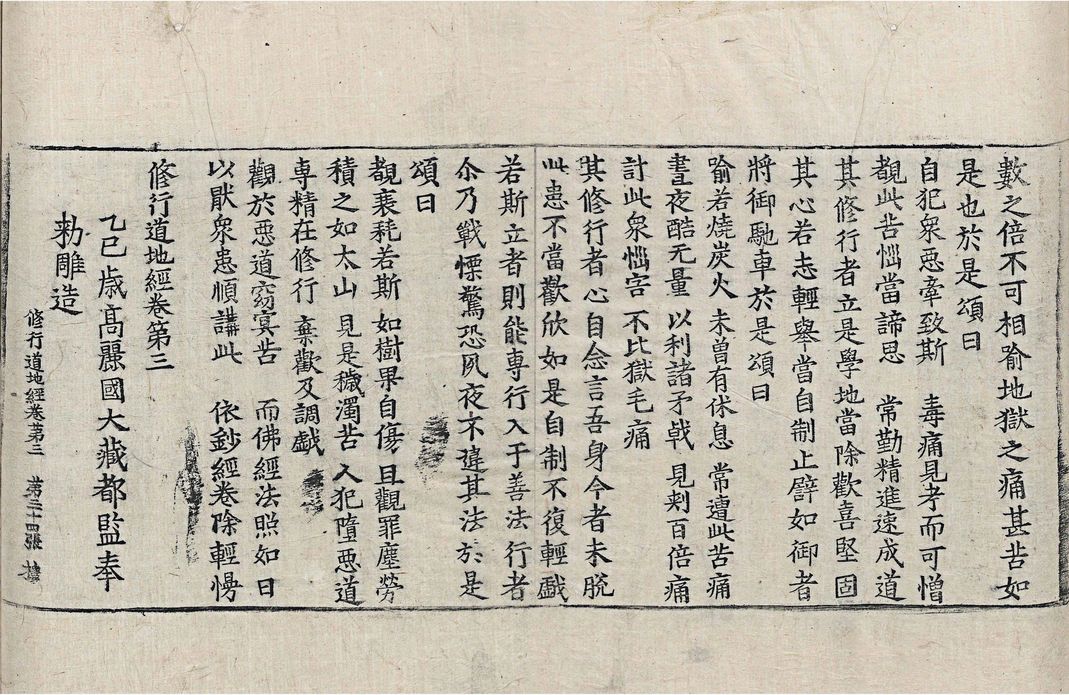 數之倍不可相喻地獄之痛甚苦如
是也於是頌曰
自犯衆惡牽致斯　毒痛見考而可憎
覩此苦惱當諦思　常勤精進速成道
其修行者立是學地當除歡喜堅固
其心若志輕舉當自制止譬如御者
將御馳車於是頌曰
喻若燒炭火　未曾有休息　常遭此苦痛
晝夜酷无量　以利諸矛戟　見刾百倍痛
計此衆惱害　不比獄毛痛
其修行者心自念言吾身今者未脫
此患不當歡欣如是自制不復輕戱
若斯立者則能專行入于善法行者
尒乃戰慄驚恐夙夜不違其法於是
頌曰
覩衰秏若斯　如樹果自傷　且觀罪塵勞
積之如太山　見是穢濁苦　入犯墮惡道
專精在修行　棄歡及調戱
觀於惡道窈冥苦　而佛經法照如日
以猒衆患順講此　依鈔經卷除輕慢
修行道地經卷第三
乙巳歳高麗國大藏都監奉
勑雕造
修行道地經卷第三　第三十張